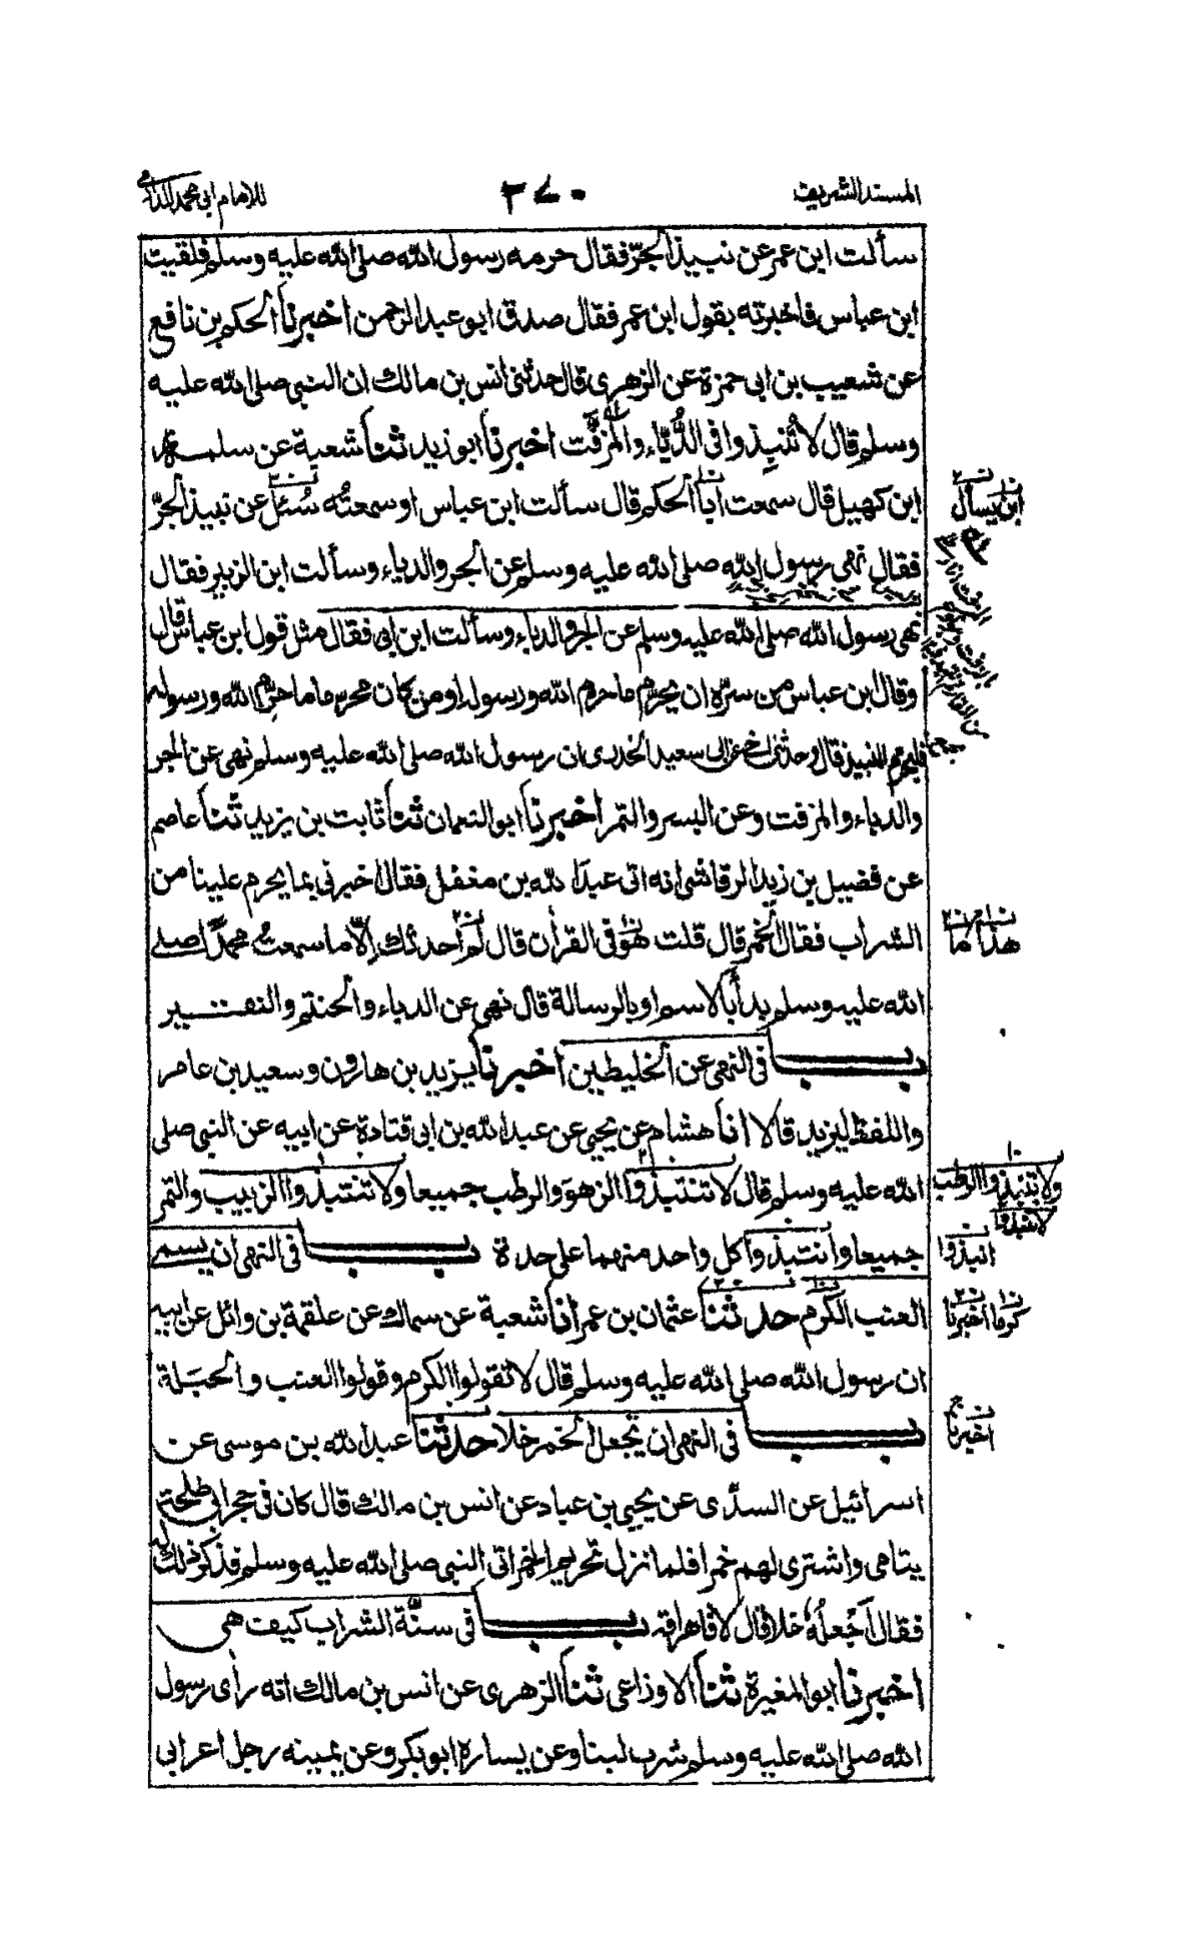 المسند الشريف ٢٧٠ للامام ابى محمد الدارمى
سألت ابن عمر عن نبيذ الجرّ فقال حرمه رسول الله صلى الله عليه وسلم فلقيت
ابن عباس فاخبرته بقول ابن عمر فقال صدق ابو عبد الرحمن اخبرنا الحكم بن نافع
عن شعيب بن ابى حمزة عن الزهرى قال حدثنى انس بن مالك ان النبى صلى الله عليه
وسلم قال لا تُنبِذوا فى الدُّبّاء والمُزفَّت اخبرنا ابو زيد ثنا شعبة عن سلمة
ابن كهيل قال سمعت ابا الحكم قال سألت ابن عباس او سمعتُه سُئل عن نبيذ الجرّ
ابن يسأل
فقال نهى رسول الله صلى الله عليه وسلم عن الجر والدباء وسألت ابن الزبير فقال
نهى رسول الله صلى الله عليه وسلم عن الجر والدباء وسألت ابن ابى فقال مثل قول ابن عباس قال
وقال ابن عباس من سرّه ان يحرّم ما حرم الله ورسوله او من كان محرما ما حرّم الله ورسوله
فليحرم النبيذ قال وحدثنى اخى عن ابى سعيد الخدرى ان رسول الله صلى الله عليه وسلم نهى عن الجر
والدباء والمزفت وعن البسر والتمر اخبرنا ابو النعمان ثنا ثابت بن يزيد ثنا عاصم
عن فضيل بن زيد الرقاشى انه اتى عبد الله بن مغفل فقال اخبرنى بما يحرم علينا من
الشراب فقال الخمر قال قلت هو فى القرأن قال لم احدثك الّا ما سمعت محمدًا صلى
الله عليه وسلم بدأ بالاسم او بالرسالة قال نهى عن الدباء والحنتم والنقير
باب فى النهى عن الخليطين اخبرنا يزيد بن هارون وسعيد بن عامر
واللفظ ليزيد قالا انا هشام عن يحيى عن عبد الله بن ابى قتادة عن ابيه عن النبى صلى
الله عليه وسلم قال لا تنتبذوا الزهو والرطب جميعا ولا تنتبذوا الزبيب والتمر
ولا تنبذوا الرطب
لا تنبذوا
جميعا وانتبذوا كل واحد منهما على حدة باب فى النهى ان يسمى
انبذوا
العنب الكرم حدثنا عثمان بن عمر انا شعبة عن سماك عن علقمة بن وائل عن ابيه
كرما اخبرنا
ان رسول الله صلى الله عليه وسلم قال لا تقولوا الكرم وقولوا العنب والحبَلة
باب فى النهى ان تجعل الخمر خلا حدثنا عبد الله بن موسى عن
اخبرنا
اسرائيل عن السدّى عن يحيى بن عباد عن انس بن مالك قال كان فى حجر ابى طلحة
يتامى واشترى لهم خمرا فلما نزل تحريم الخمر اتى النبى صلى الله عليه وسلم فذكر ذلك له
فقال اَجْعلُهُ خلا قال لا فاهراقه باب فى سنّة الشراب كيف هى
اخبرنا ابو المغيرة ثنا الاوزاعى ثنا الزهرى عن انس بن مالك انه رأى رسول
الله صلى الله عليه وسلم شرب لبنا وعن يساره ابو بكر وعن يمينه رجل اعرابى